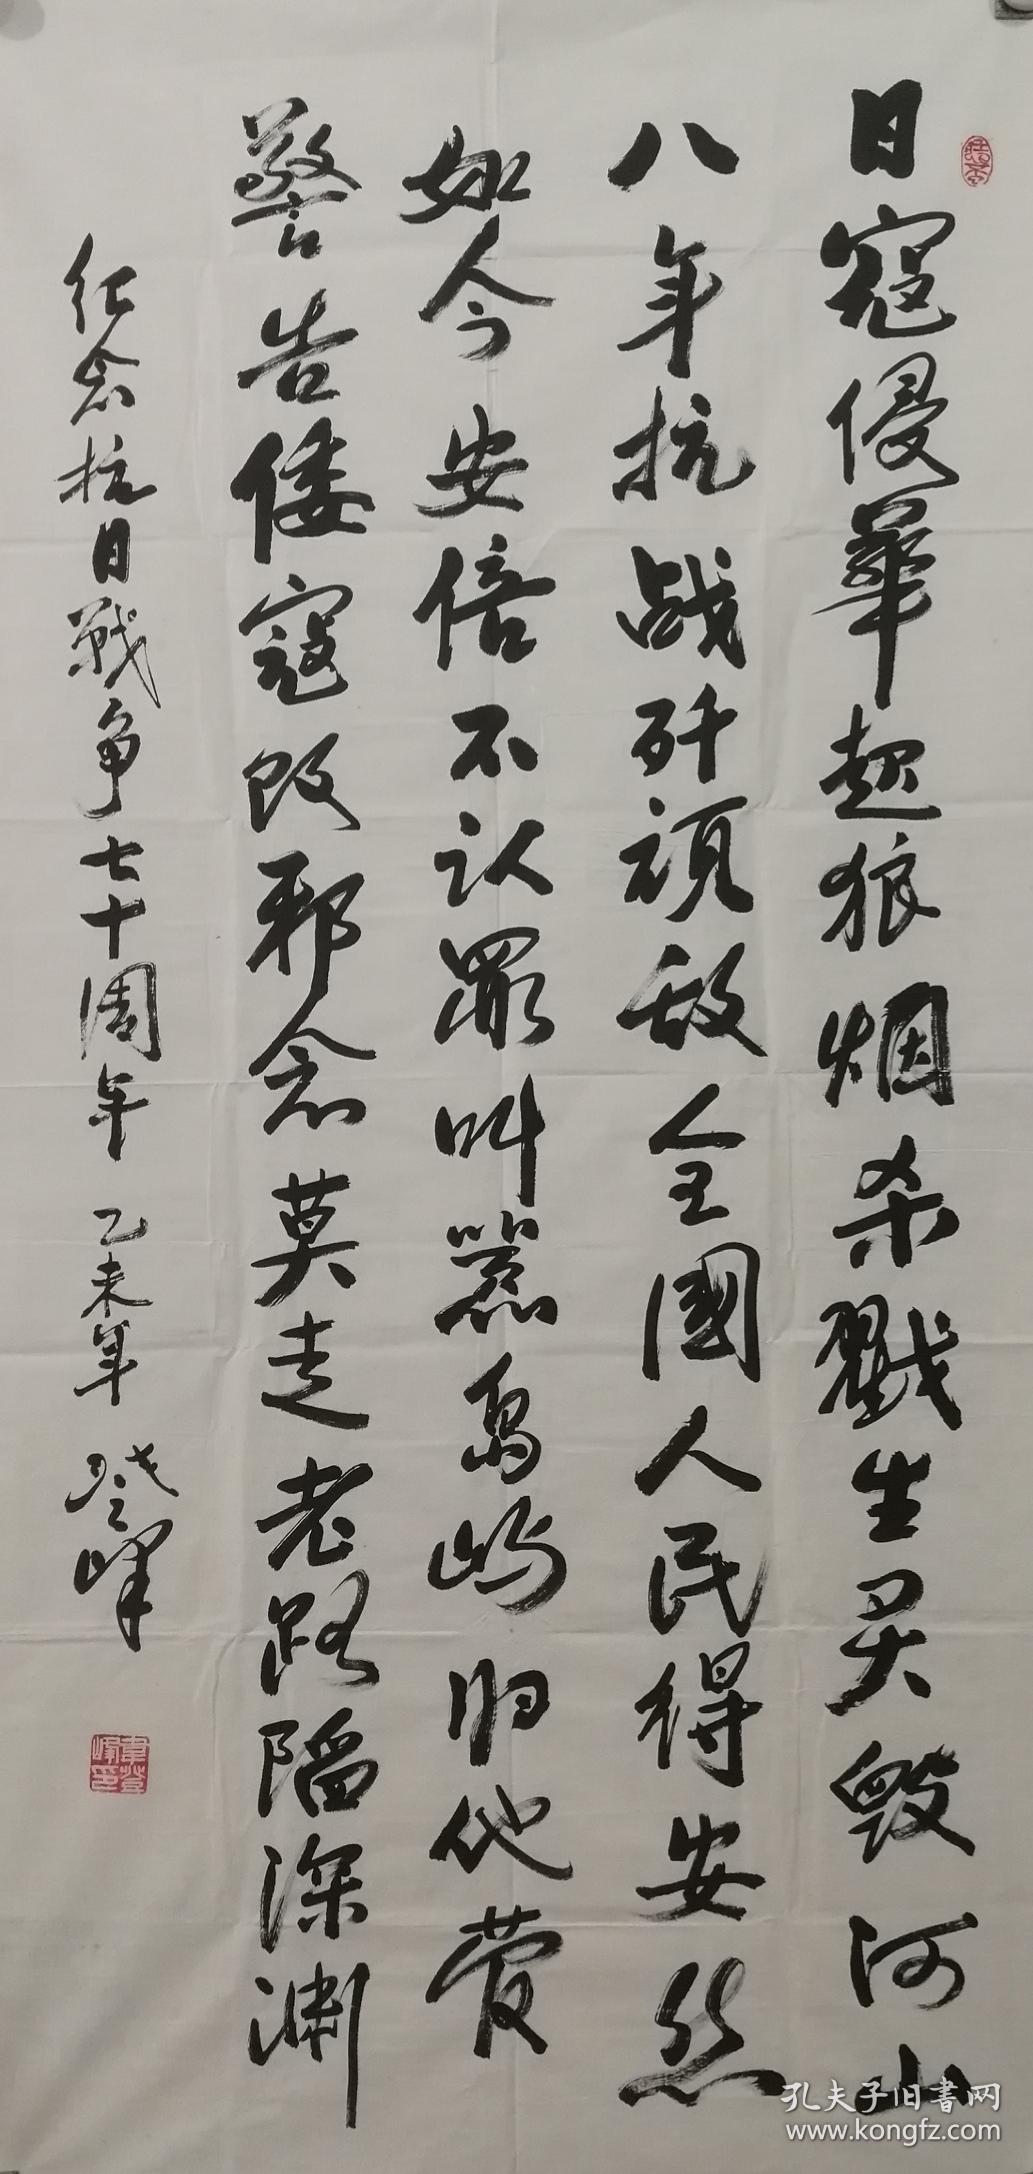 日寇侵華起狼烟杀戮生灵毁河山
八年抗战歼頑敌全國人民得安然
如今安倍不认罪叫嚣島屿归他管
警告倭寇改邪念莫走老路陷深渊
纪念抗日戰争七十周年 乙未年 登峰
韋登峰印
孔夫子旧書网
www.kongfz.com